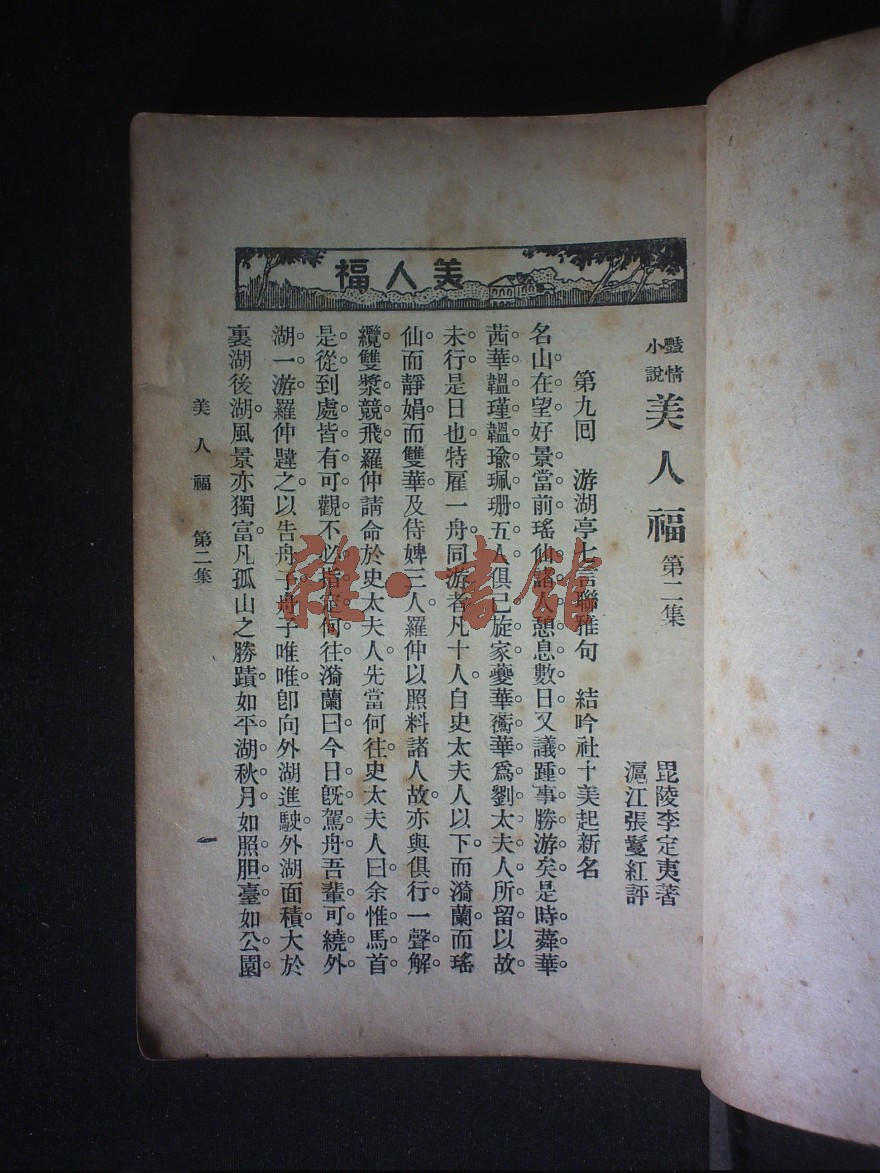 美人福
豔情小說 美人福 第二集
毘陵李定夷著
滬江張鸞紅評
第九回 游湖亭七言聯雅句 結吟社十美起新名
名山在望好景當前瑤仙諸人憩息數日又議踵事勝游矣是時蕣華
茜華韞瑾韞瑜珮珊五人俱已旋家夔華蘅華爲劉太夫人所留以故
未行是日也特雇一舟同游者凡十人自史太夫人以下而漪蘭而瑤
仙而靜娟而雙華及侍婢三人羅仲以照料諸人故亦與俱行一聲解
纜雙槳競飛羅仲請命於史太夫人先當何往史太夫人曰余惟馬首
是從到處皆有可觀不必指定何往漪蘭曰今日旣駕舟吾輩可繞外
湖一游羅仲韙之以告舟子舟子唯唯卽向外湖進駛外湖面積大於
裏湖後湖風景亦獨富凡孤山之勝蹟如平湖秋月如照胆臺如公園
美人福 第二集
一
雜·書館